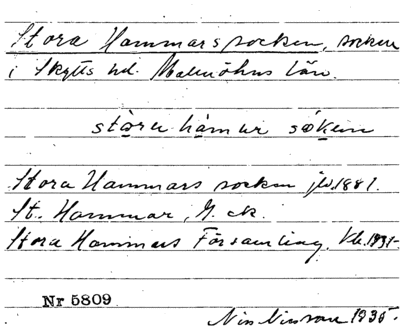 Stora Hammars socken, socken
i Skytts hd. Malmöhus län.
stòra hámar sóken
Stora Hammars socken jb. 1881.
St. Hammar, G. ek.
Stora Hammars Församling, Kb. 1931-
Nr 5809
Nils Nilsson 1935.